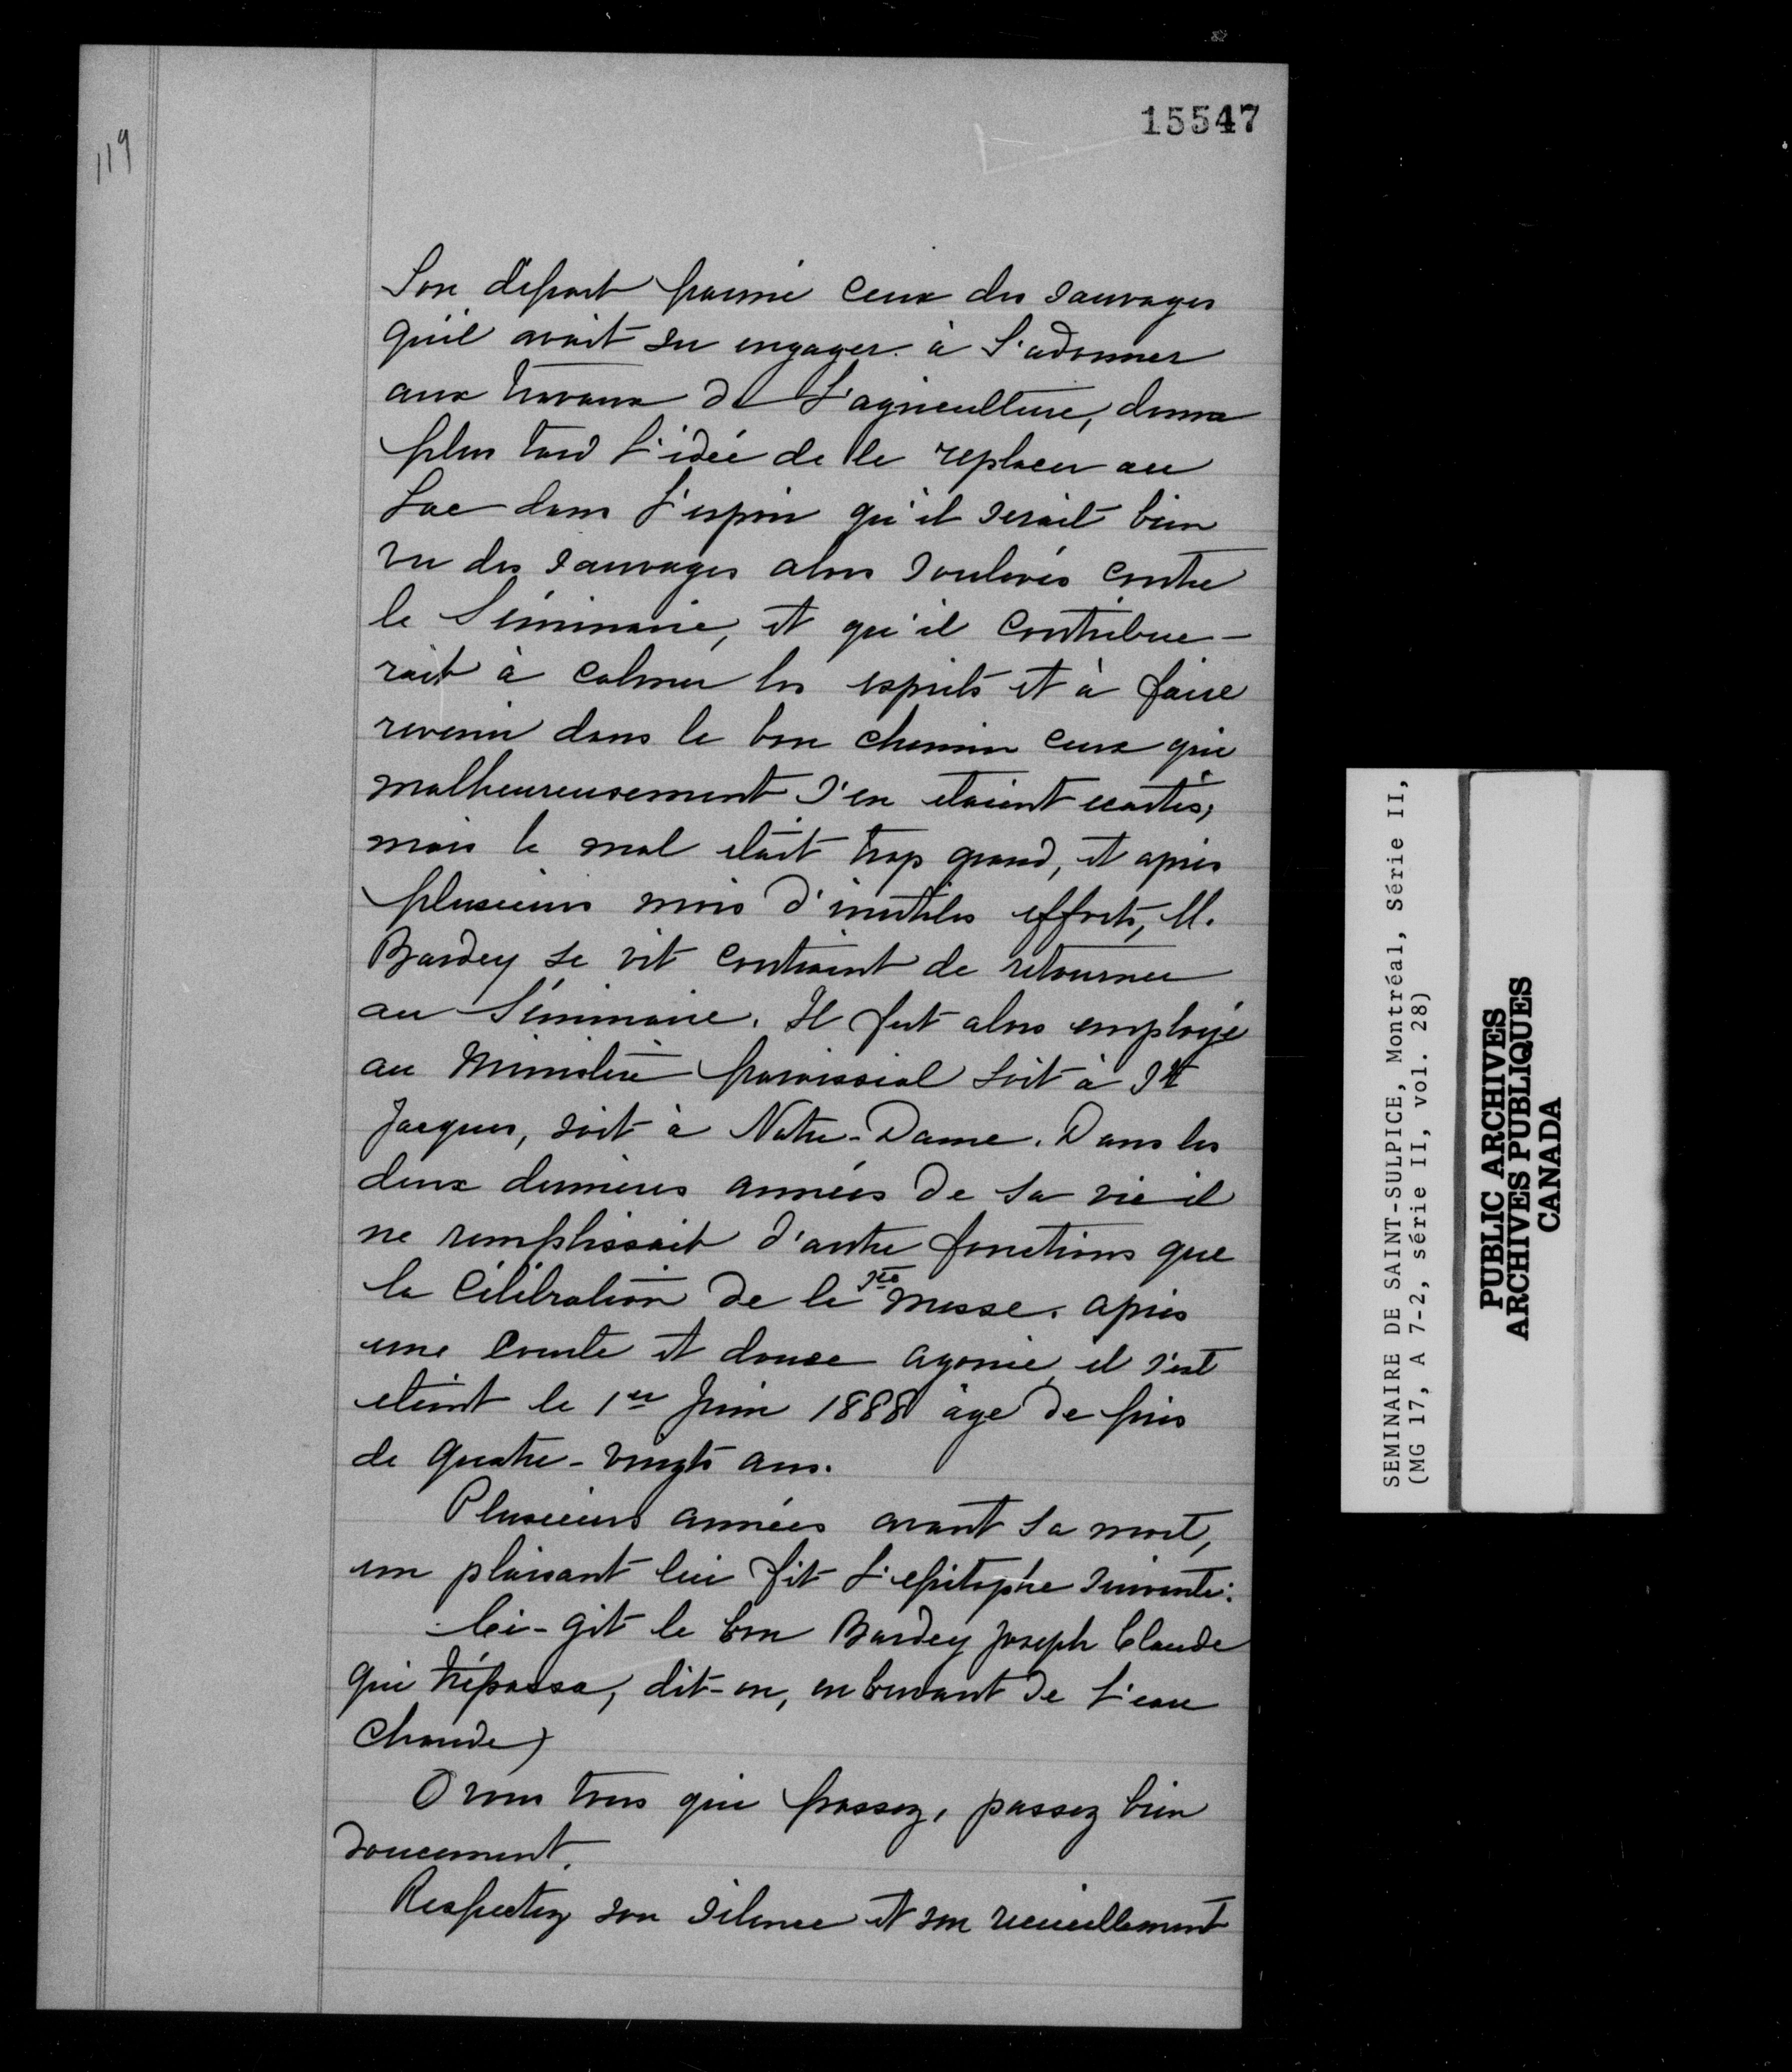 15547
119
Son départ parmi ceux des sauvages
qu'il avait su engager à s'adonner
aux travaux de l'agriculture, donna
plus tard l'idée de le replacer au
Lac dans l'espoir qu'il serait bien
vu des sauvages alors soulevés contre
le Séminaire, et qu'il contribue-
rait à calmer les esprits et à faire
revenir dans le bon chemin ceux qui
malheureusement s'en etaient ecartés,
mais le mal etait trop grand, et après
plusieurs mois d'inutiles efforts, M.
Bardey se vit contraint de retourner
au Séminaire. Il fut alors employé
au Ministère paroissial soit à St
Jacques, soit à Notre-Dame. Dans les
deux dernieres années de sa vie il
ne remplissait d'autre fonctions que
la Célébration de la Ste messe. après
une courte et douce agonie, il s'est
eteint le 1er Juin 1888 âge de près
de quatre-vingts ans.
Plusieurs années avant sa mort,
un plaisant lui fit l'epitaphe suivante:
Ci-git le bon Bardey Joseph Claude
qui trépassa, dit-on, en buvant de l'eau
chaude
O vous tous qui passez, passez bien
doucement.
Respectez son silence et son recueillement
SEMINAIRE DE SAINT-SULPICE, Montréal, Série II,
(MG 17, A 7-2, série II, vol. 28)
PUBLIC ARCHIVES
ARCHIVES PUBLIQUES
CANADA